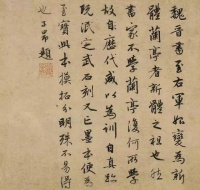 魏晉書至右軍始變為新
體蘭亭者新體之祖也然
書家不學蘭亭復何所學
故自歷代咸以為訓自真跡
既没定武石刻又亡墨本便為
至寶此本摸拓分明殊不易得
也子昂題